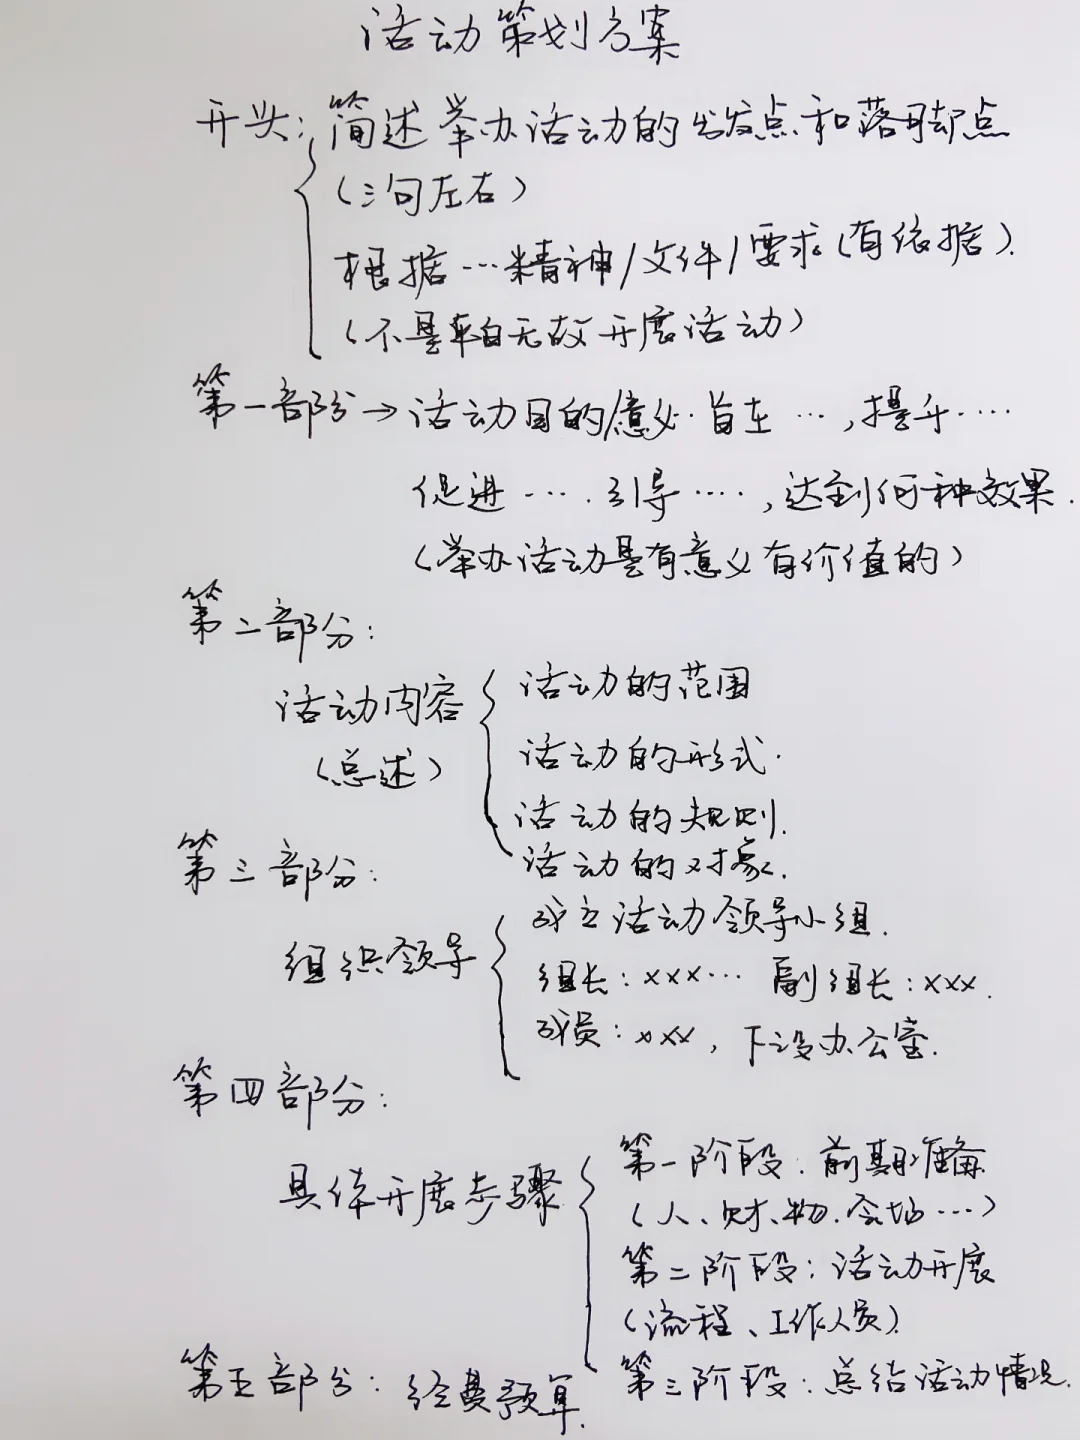 活动策划方案
开头：简述举办活动的出发点和落脚点
（三句左右）
根据…精神/文件/要求（有依据）.
（不是平白无故开展活动）
第一部分→活动目的/意义.旨在…，提升….
促进….引导….，达到何种效果.
（举办活动是有意义有价值的）
第二部分：
活动内容
（总述）
活动的范围
活动的形式.
活动的规则.
活动的对象.
第三部分：
组织领导
成立活动领导小组.
组长：xxx… 副组长：xxx.
成员：xxx，下设办公室.
第四部分：
具体开展步骤
第一阶段.前期准备
（人、财、物.会场…）
第二阶段：活动开展
（流程、工作人员）.
第三阶段：总结活动情况.
第五部分：经费预算.